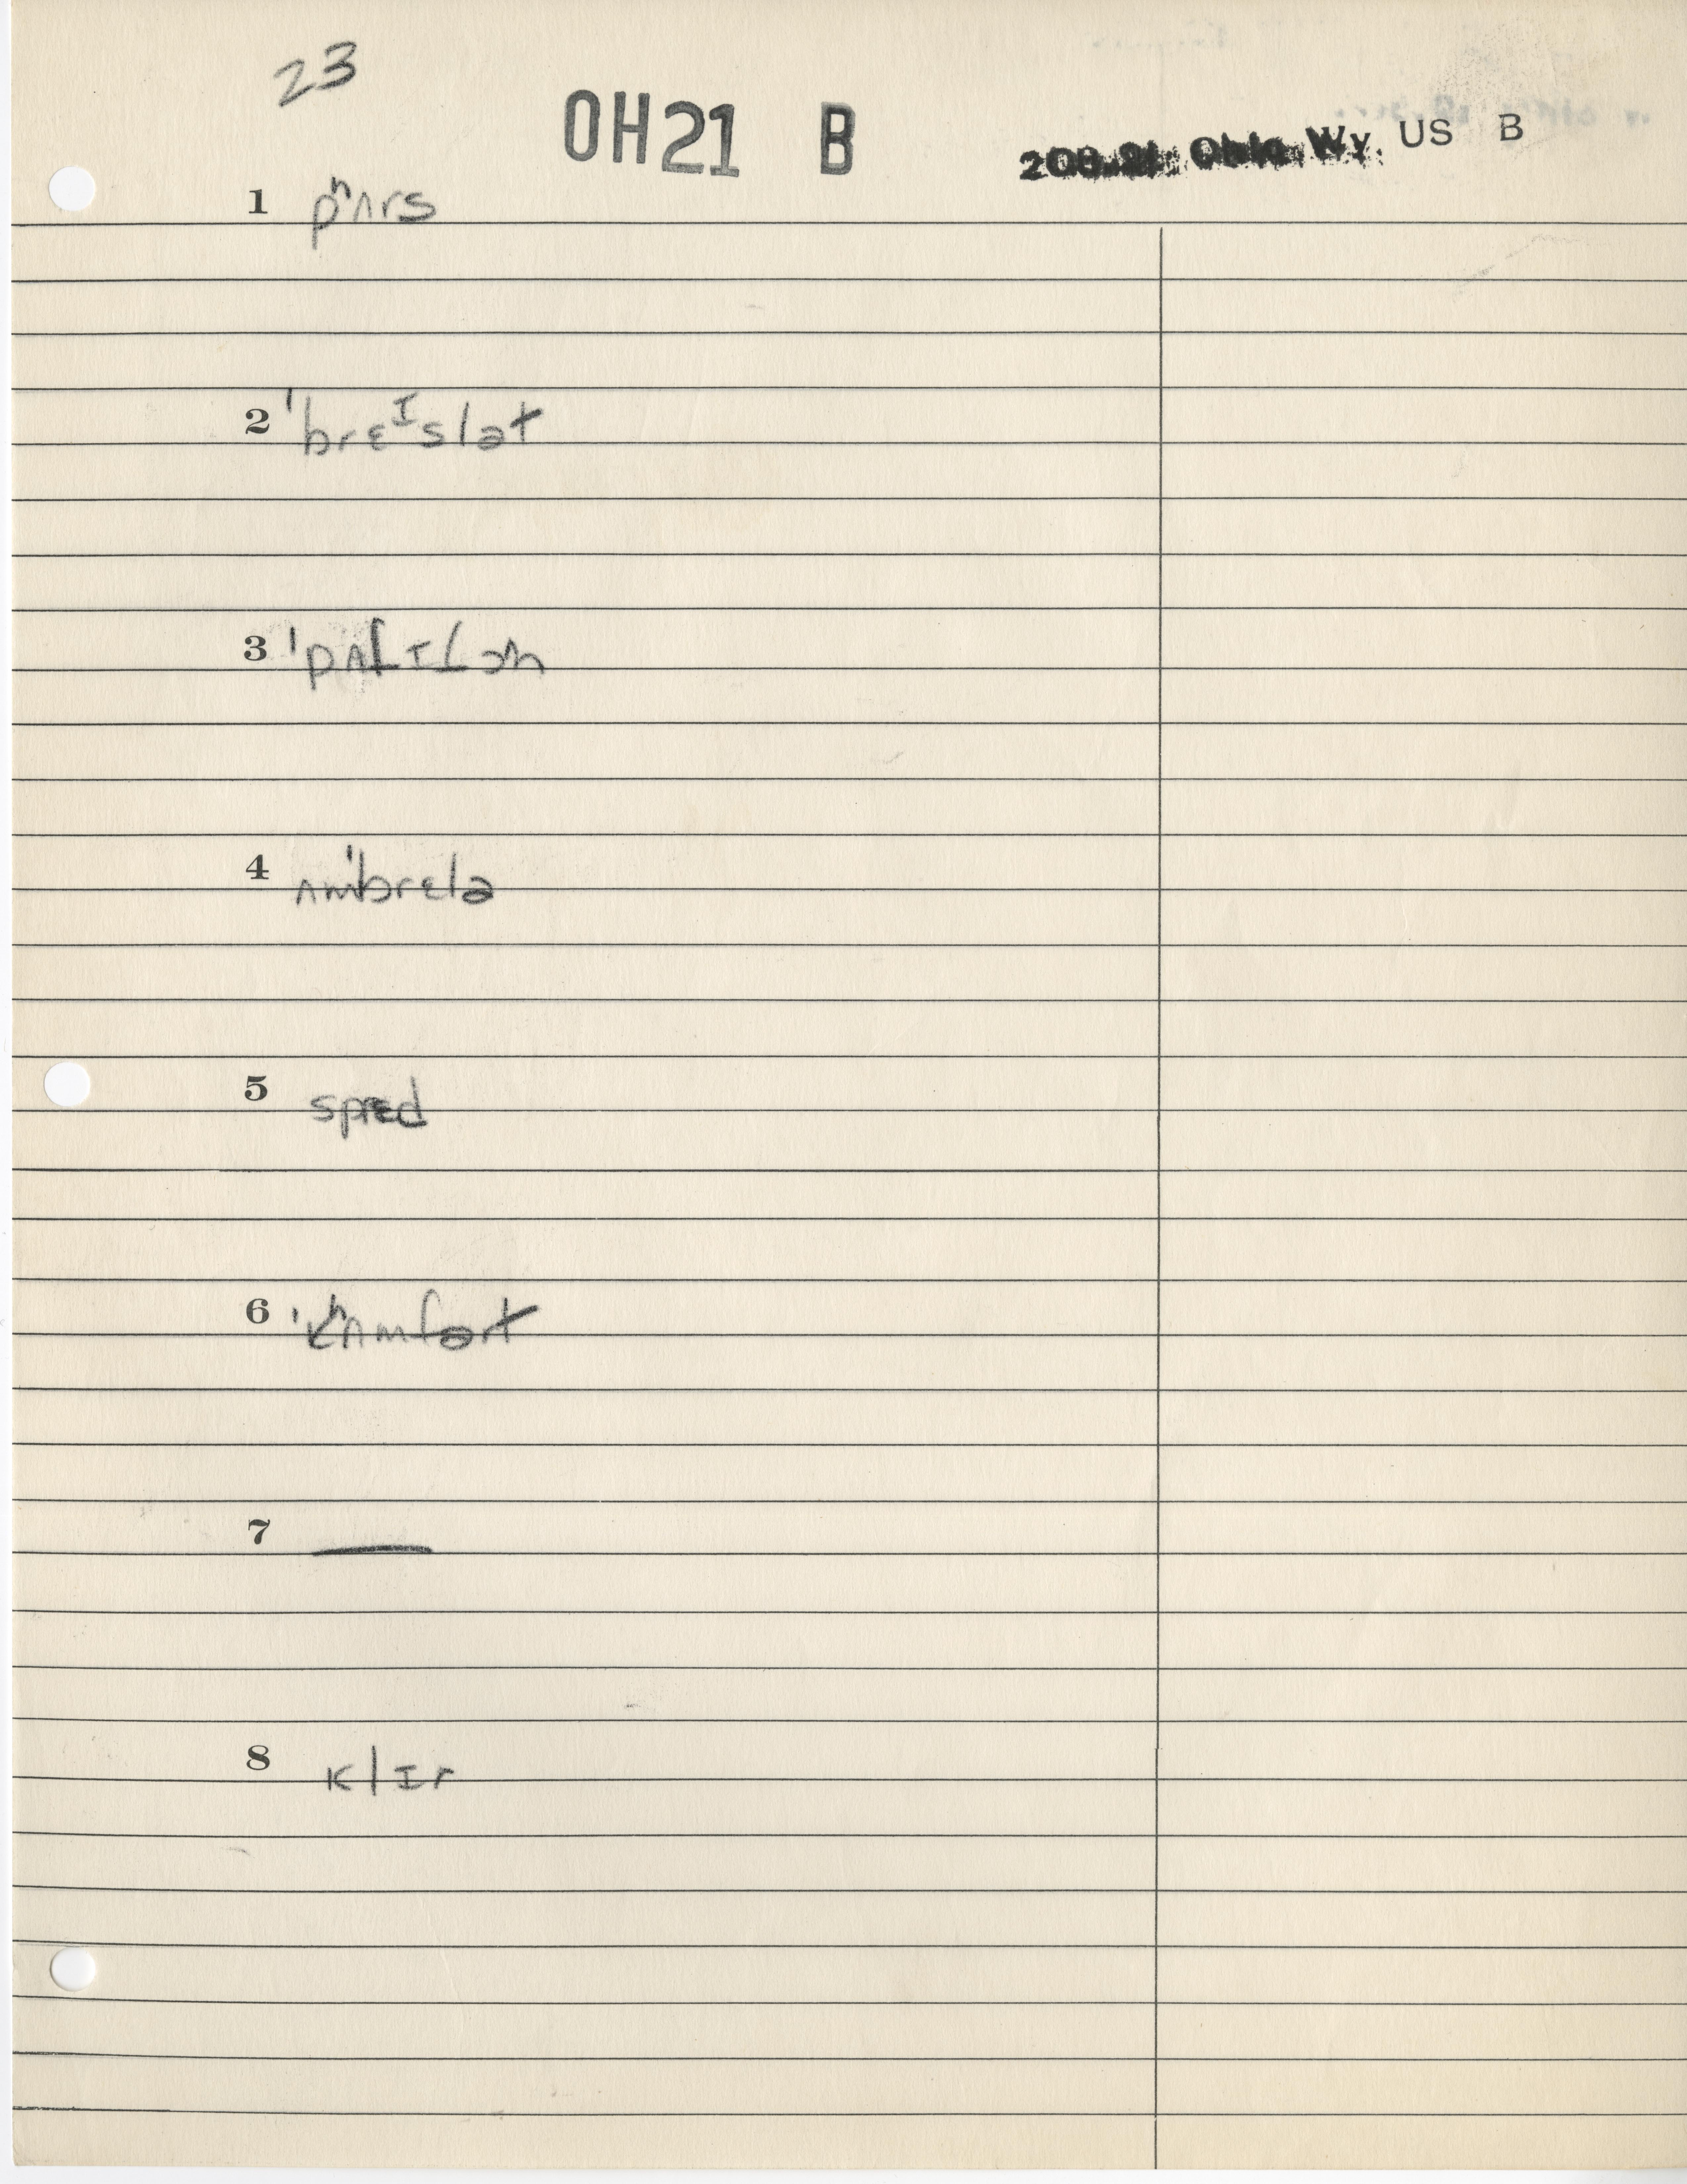 23
OH21 B
US B
1 pʰʌrs
2 ˈbrɛᴵslət
3
4 ʌmˈbrɛlə
5 sprɛd
6 ˈkʰʌmfərt
7 —
8 klɪr